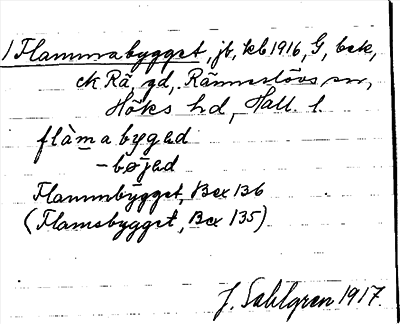 1 Flammabygget, jb, kb 1916, G, bek,
ek Rä, gd, Ränneslövs sn,
Höks hd, Hall. l.
flàmabygəd
-bøjəd
Flammbygget, Bex 136
(Flamebygget, Bex 135)
J. Sahlgren 1917.